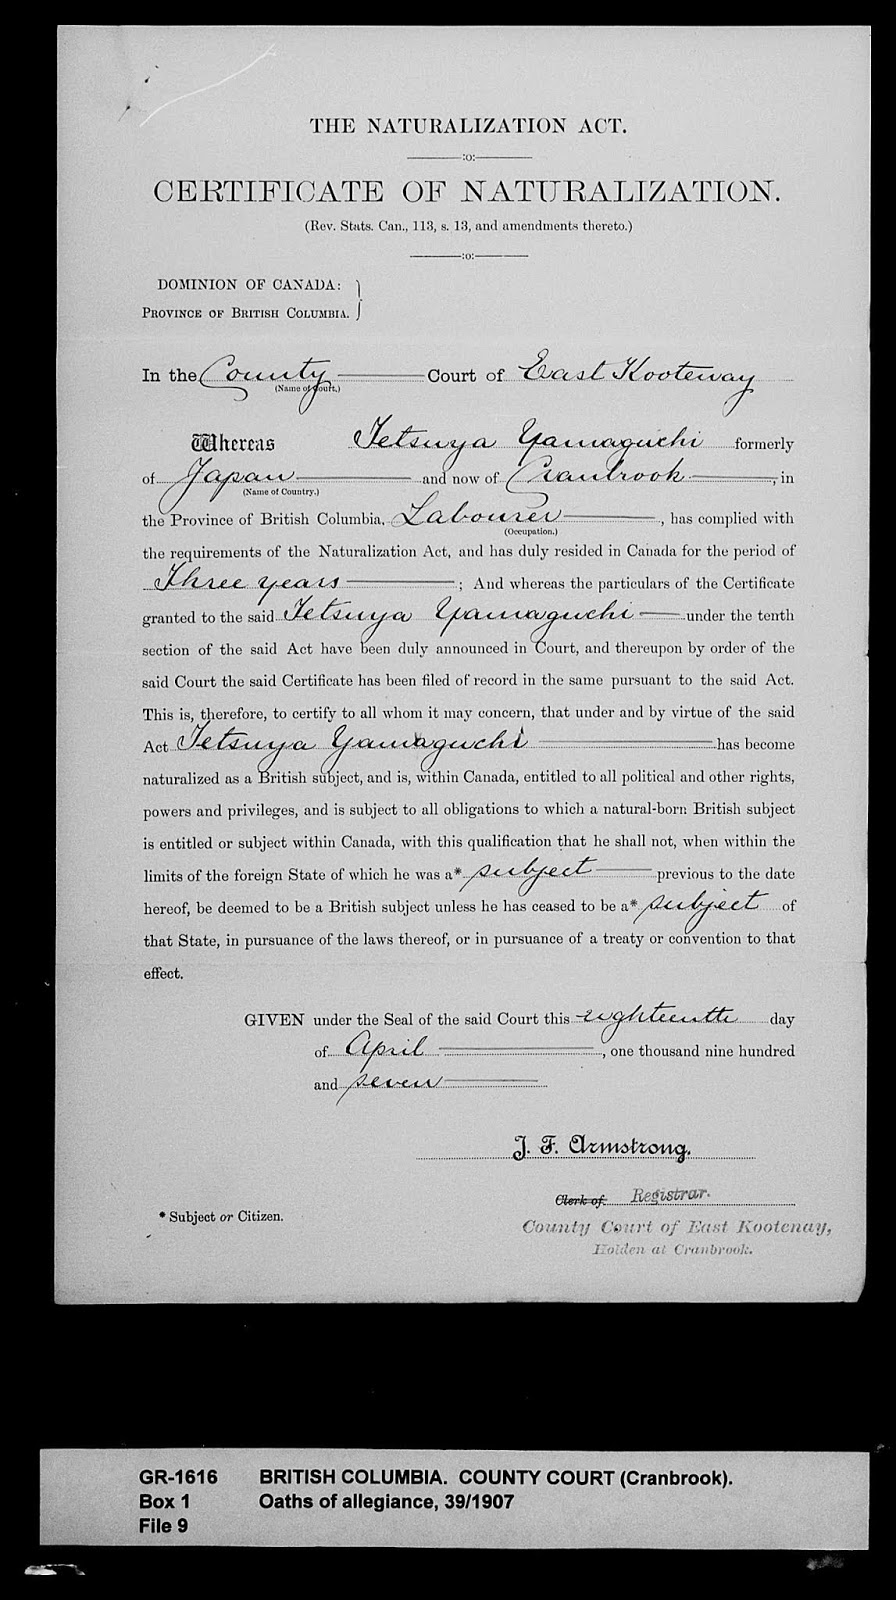 THE NATURALIZATION ACT.
:o:
CERTIFICATE OF NATURALIZATION.
(Rev. Stats. Can., 113, s. 13, and amendments thereto.)
:o:
DOMINION OF CANADA:
PROVINCE OF BRITISH COLUMBIA.
In the County Court of East Kootenay
(Name of Court.)
Whereas Tetsuya Yamaguchi formerly
of Japan and now of Cranbrook, in
(Name of Country.)
the Province of British Columbia, Labourer, has complied with
(Occupation.)
the requirements of the Naturalization Act, and has duly resided in Canada for the period of
Three years; And whereas the particulars of the Certificate
granted to the said Tetsuya Yamaguchi under the tenth
section of the said Act have been duly announced in Court, and thereupon by order of the
said Court the said Certificate has been filed of record in the same pursuant to the said Act.
This is, therefore, to certify to all whom it may concern, that under and by virtue of the said
Act Tetsuya Yamaguchi has become
naturalized as a British subject, and is, within Canada, entitled to all political and other rights,
powers and privileges, and is subject to all obligations to which a natural-born British subject
is entitled or subject within Canada, with this qualification that he shall not, when within the
limits of the foreign State of which he was a* subject previous to the date
hereof, be deemed to be a British subject unless he has ceased to be a* subject of
that State, in pursuance of the laws thereof, or in pursuance of a treaty or convention to that
effect.
GIVEN under the Seal of the said Court this eighteenth day
of April, one thousand nine hundred
and seven
J. F. Armstrong.
Clerk of Registrar.
* Subject or Citizen.
County Court of East Kootenay,
Holden at Cranbrook.
GR-1616 BRITISH COLUMBIA. COUNTY COURT (Cranbrook).
Box 1 Oaths of allegiance, 39/1907
File 9